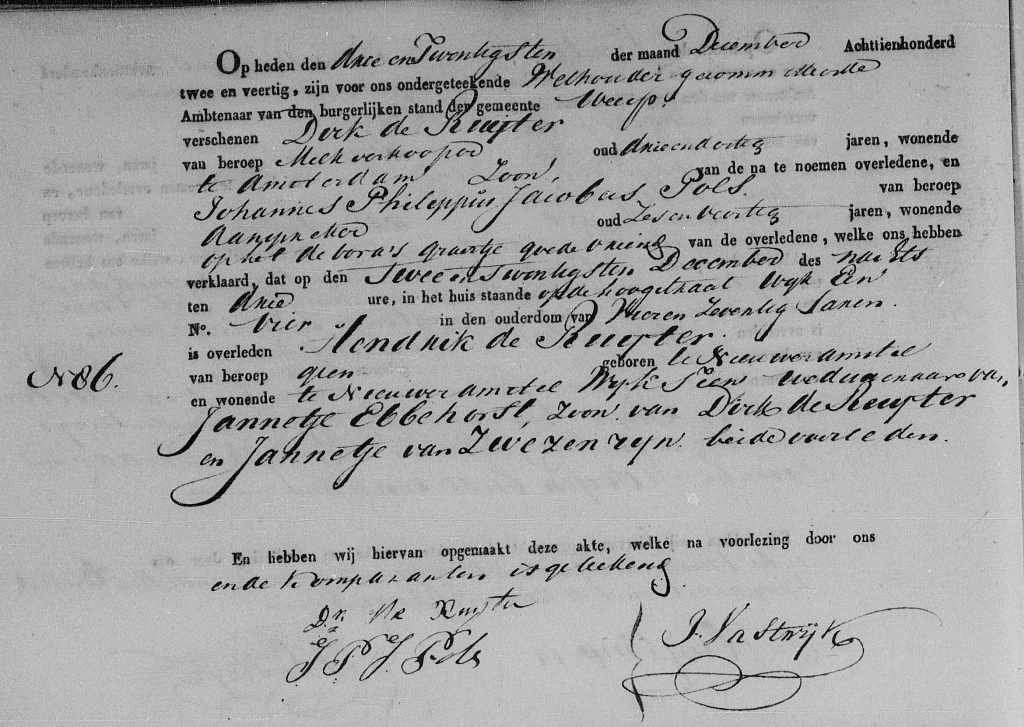 Op heden den drie en Twentigsten der maand December Achttienhonderd
twee en veertig, zijn voor ons ondergeteekende Wethouder gecommitteerde
Ambtenaar van den burgerlijken stand der gemeente Weesp.
verschenen Dirk de Ruijter
van beroep Melkverkooper oud drieendertig jaren, wonende
te Amsterdam Zoon, van de na te noemen overledene, en
Johannes Philippus Jacobus Pols van beroep
Aanspreker oud Zesenveertig jaren, wonende
op het goede vriend van de overledene, welke ons hebben
verklaard, dat op den Twee en Twentigsten December des nachts
ten drie ure, in het huis staande op de hoogstraat Wijk Een
No. Vier in den ouderdom van Vieren Zeventig Jaren.
is overleden Hendrik de Ruijter.
No 86.
van beroep geen geboren te Nieuweramstel
en wonende te Nieuwer amstel Wijk Tien weduwenaar van
Jannetje Ebbehorst, Zoon van Dirk de Ruijter
en Jannetje van Zwezenryn. beide overleden.
En hebben wij hiervan opgemaakt deze akte, welke na voorlezing door ons
en de Komparanten is geteekend
Dk de Ruijter
J P J Pols
J.